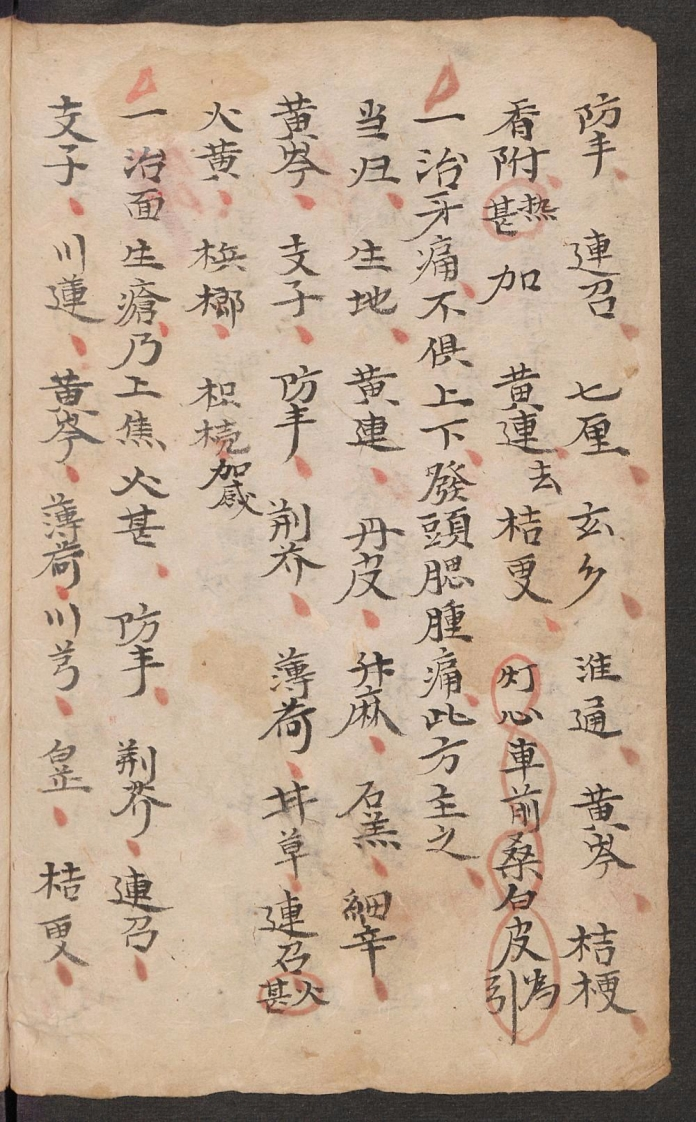 防丰 連召 七厘 玄乡 淮通 黄岑 桔梗
香附 熱甚 加 黄連 去 桔更 灯心車前桑白皮為引
一治牙痛不俱上下發頭腮腫痛此方主之
当归 生地 黄連 丹皮 升麻 石羔 細辛
黄岑 支子 防丰 荆芥 薄荷 甘草 連召 火甚
火黄 梹榔 枳売 加减
一治面生瘡乃上焦火甚 防丰 荆芥 連召
支子 川蓮 黄岑 薄荷 川芎 白芷 桔更